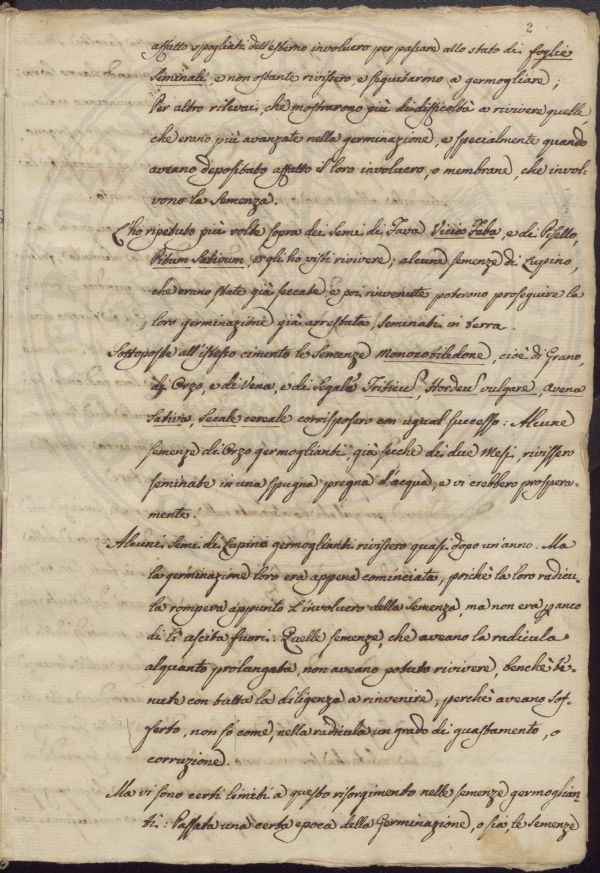 2
affatto spogliati dell'esterno involucro per passare allo stato di foglie
Seminali, e non ostante rivissero, e seguitarono a germogliare;
Per altro rilevai, che mostrarono più difficoltà a rivivere quelle,
che erano più avanzate nella germinazione, e specialmente quando
aveano depositato affatto il loro involucro, o membrane, che invol-
vono la Semenza.
L'ho ripetuto più volte sopra dei Semi di Fava Vicia Faba, e di Pisello,
Pisum Sativum, e gli ho visti rivivere; alcune semenze di Lupino,
che erano state già seccate e poi rinvenute poterono proseguire la
loro germinazione già arrestata, seminati in terra.
Sottoposte all'istesso cimento le Semenze Monocotiledone, cioè di Grano,
di Orzo, e di Vena, e di Segale Triticu, Hordeu vulgare, Avena
Sativa, Secale cereale corrisposero con ugual successo: Alcune
semenze di Orzo germoglianti, già secche di due Mesi, rivissero
seminate in una spugna pregna d'acqua, e vi crebbero prospera-
mente.
Alcuni Semi di Lupino germoglianti rivissero quasi dopo un'anno. Ma
la germinazione loro era appena cominciata, poichè la loro radicu-
la rompeva appunto l'involucro della Semenza, ma non era manco
di lì escita fuori. Quelle semenze, che aveano la radicula
alquanto prolungata, non aveano potuto rivivere, benchè te-
nute con tutta la diligenza a rinvenire, perchè aveano sof-
ferto, non so come, nella radicula un grado di guastamento, o
corruzione.
Ma vi sono certi limiti a questo risorgimento nelle semenze germoglian-
ti: Passata una certa epoca della Germinazione, o sia, le Semenze